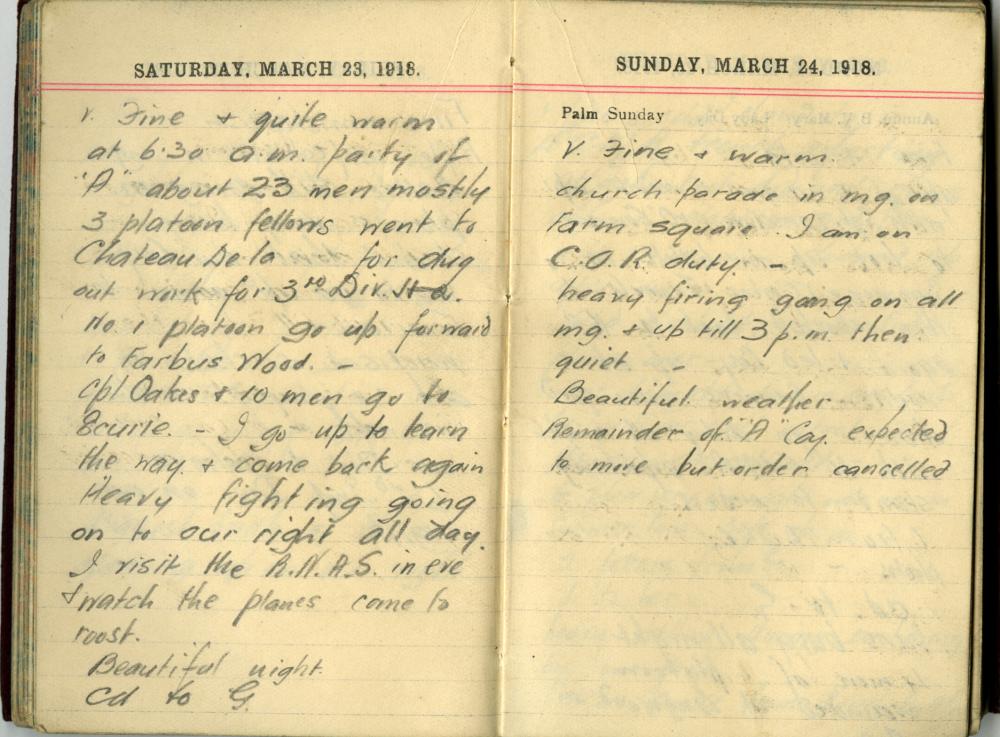 SATURDAY, MARCH 23, 1918.
V. Fine + quite warm
at 6.30 a.m. party of
"A" about 23 men mostly
3 platoon fellows went to
Chateau De-la for dug
out work for 3rd Div. H.Q.
No. 1 platoon go up forward
to Farbus Wood. -
Cpl Oakes + 10 men go to
Ecurie. - I go up to learn
the way + come back again
Heavy fighting going
on to our right all day.
I visit the R.N.A.S. in eve
+ watch the planes come to
roost.
Beautiful night
Cd to G.
SUNDAY, MARCH 24, 1918.
Palm Sunday
V. Fine + warm.
church parade in mg. on
Farm square. I am on
C.O.R. duty. -
heavy firing going on all
mg. + up till 3 p.m. then
quiet -
Beautiful weather
Remainder of "A" Coy. expected
to move but order cancelled